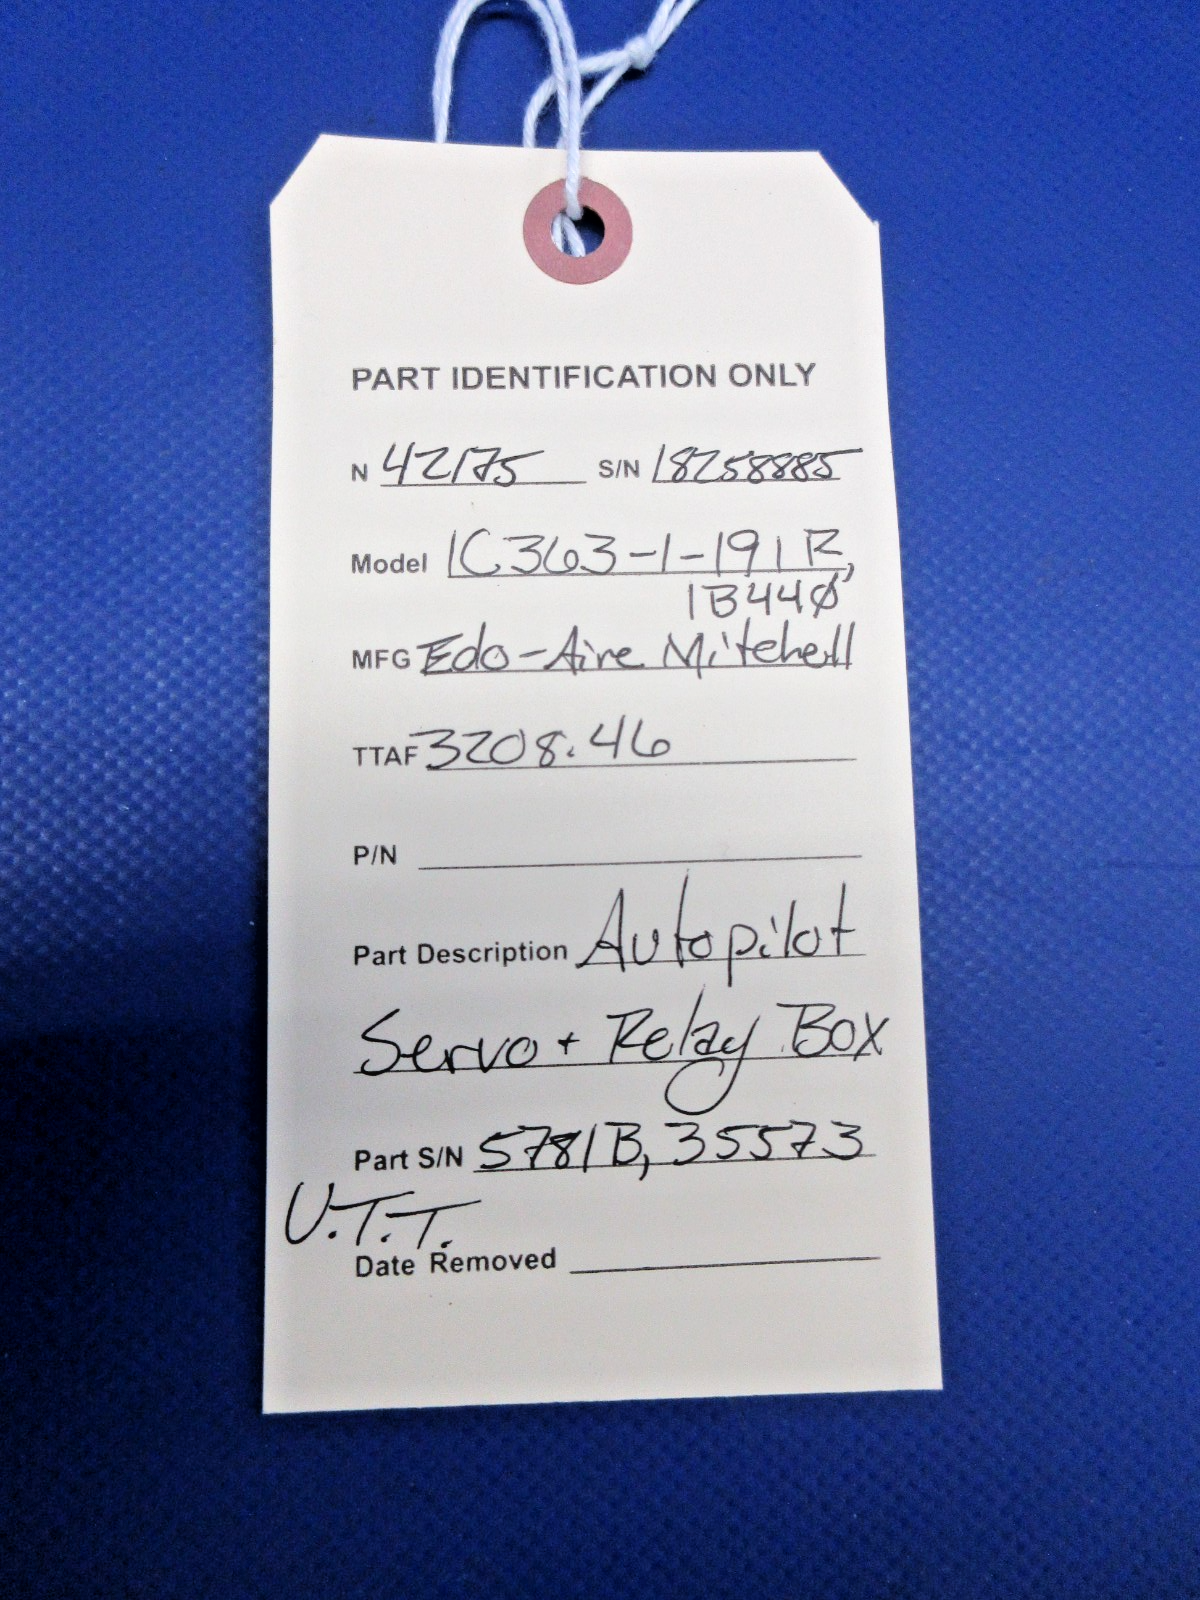 PART IDENTIFICATION ONLY
N 42175 S/N 18258885
Model 1C363-1-191R,
1B44Ø
MFG Edo-Aire Mitchell
TTAF 3208.46
P/N
Part Description Autopilot
Servo + Relay Box
Part S/N 5781B, 35573
U.T.T.
Date Removed